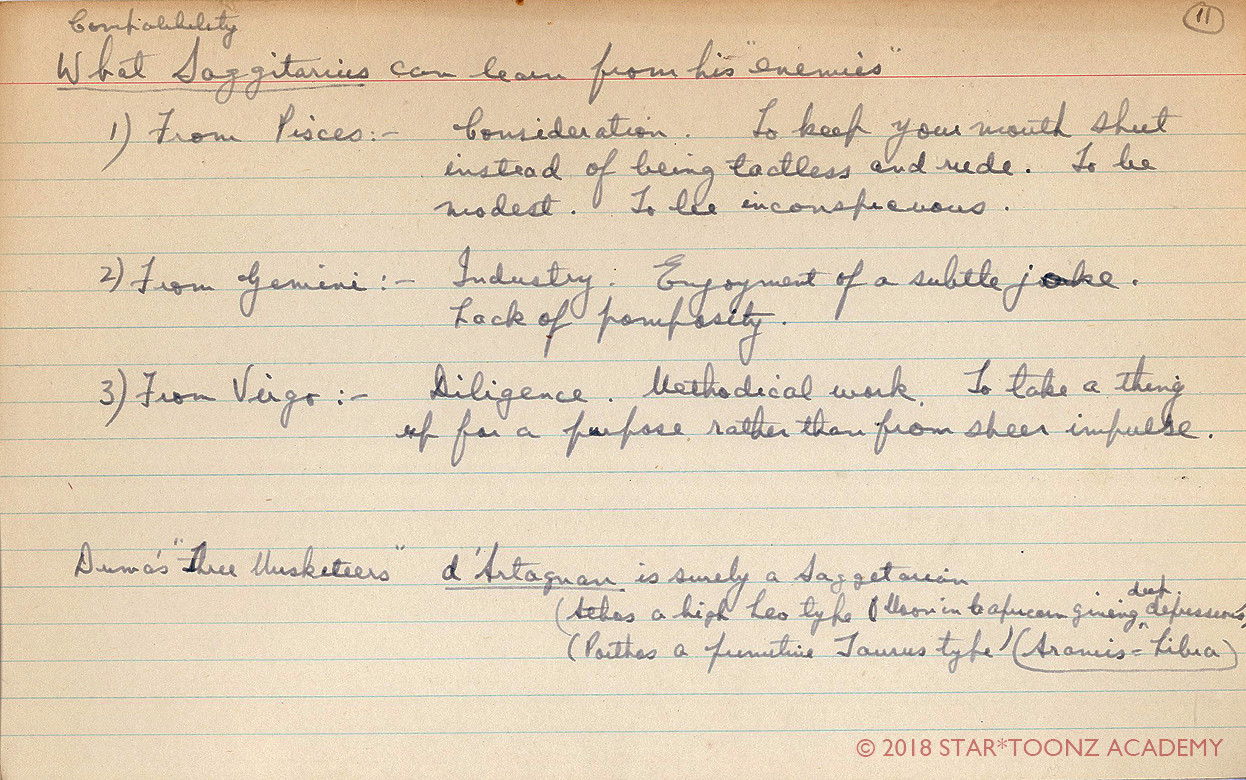 Compatibility
11
What Saggitarius can learn from his "enemies"
1) From Pisces:- Consideration. To keep your mouth shut
instead of being tactless and rude. To be
modest. To be inconspicuous.
2) From Gemini:- Industry. Enjoyment of a subtle joke.
Lack of pomposity.
3) From Virgo:- Diligence. Methodical work. To take a thing
up for a purpose rather than from sheer impulse.
Dumas "Three Musketeers" d'Artagnan is surely a Saggetarian
deep
(Athos a high Leo type (Moon in Capricorn giving depressions)
(Porthos a primitive Taurus type) (Aramis = Libra)
© 2018 STAR*TOONZ ACADEMY